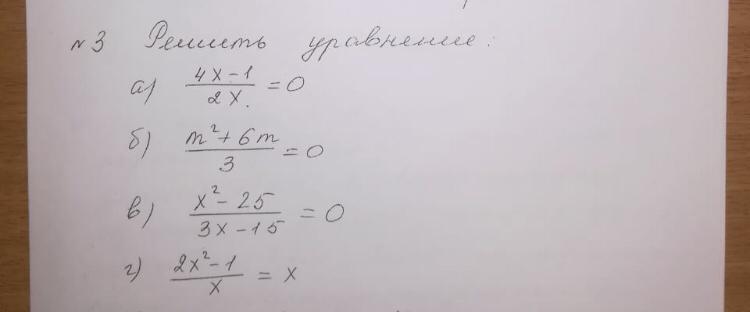 №3 Решить уравнение:
а) (4x-1)/(2x) = 0
б) (m²+6m)/3 = 0
в) (x²-25)/(3x-15) = 0
г) (2x²-1)/x = x